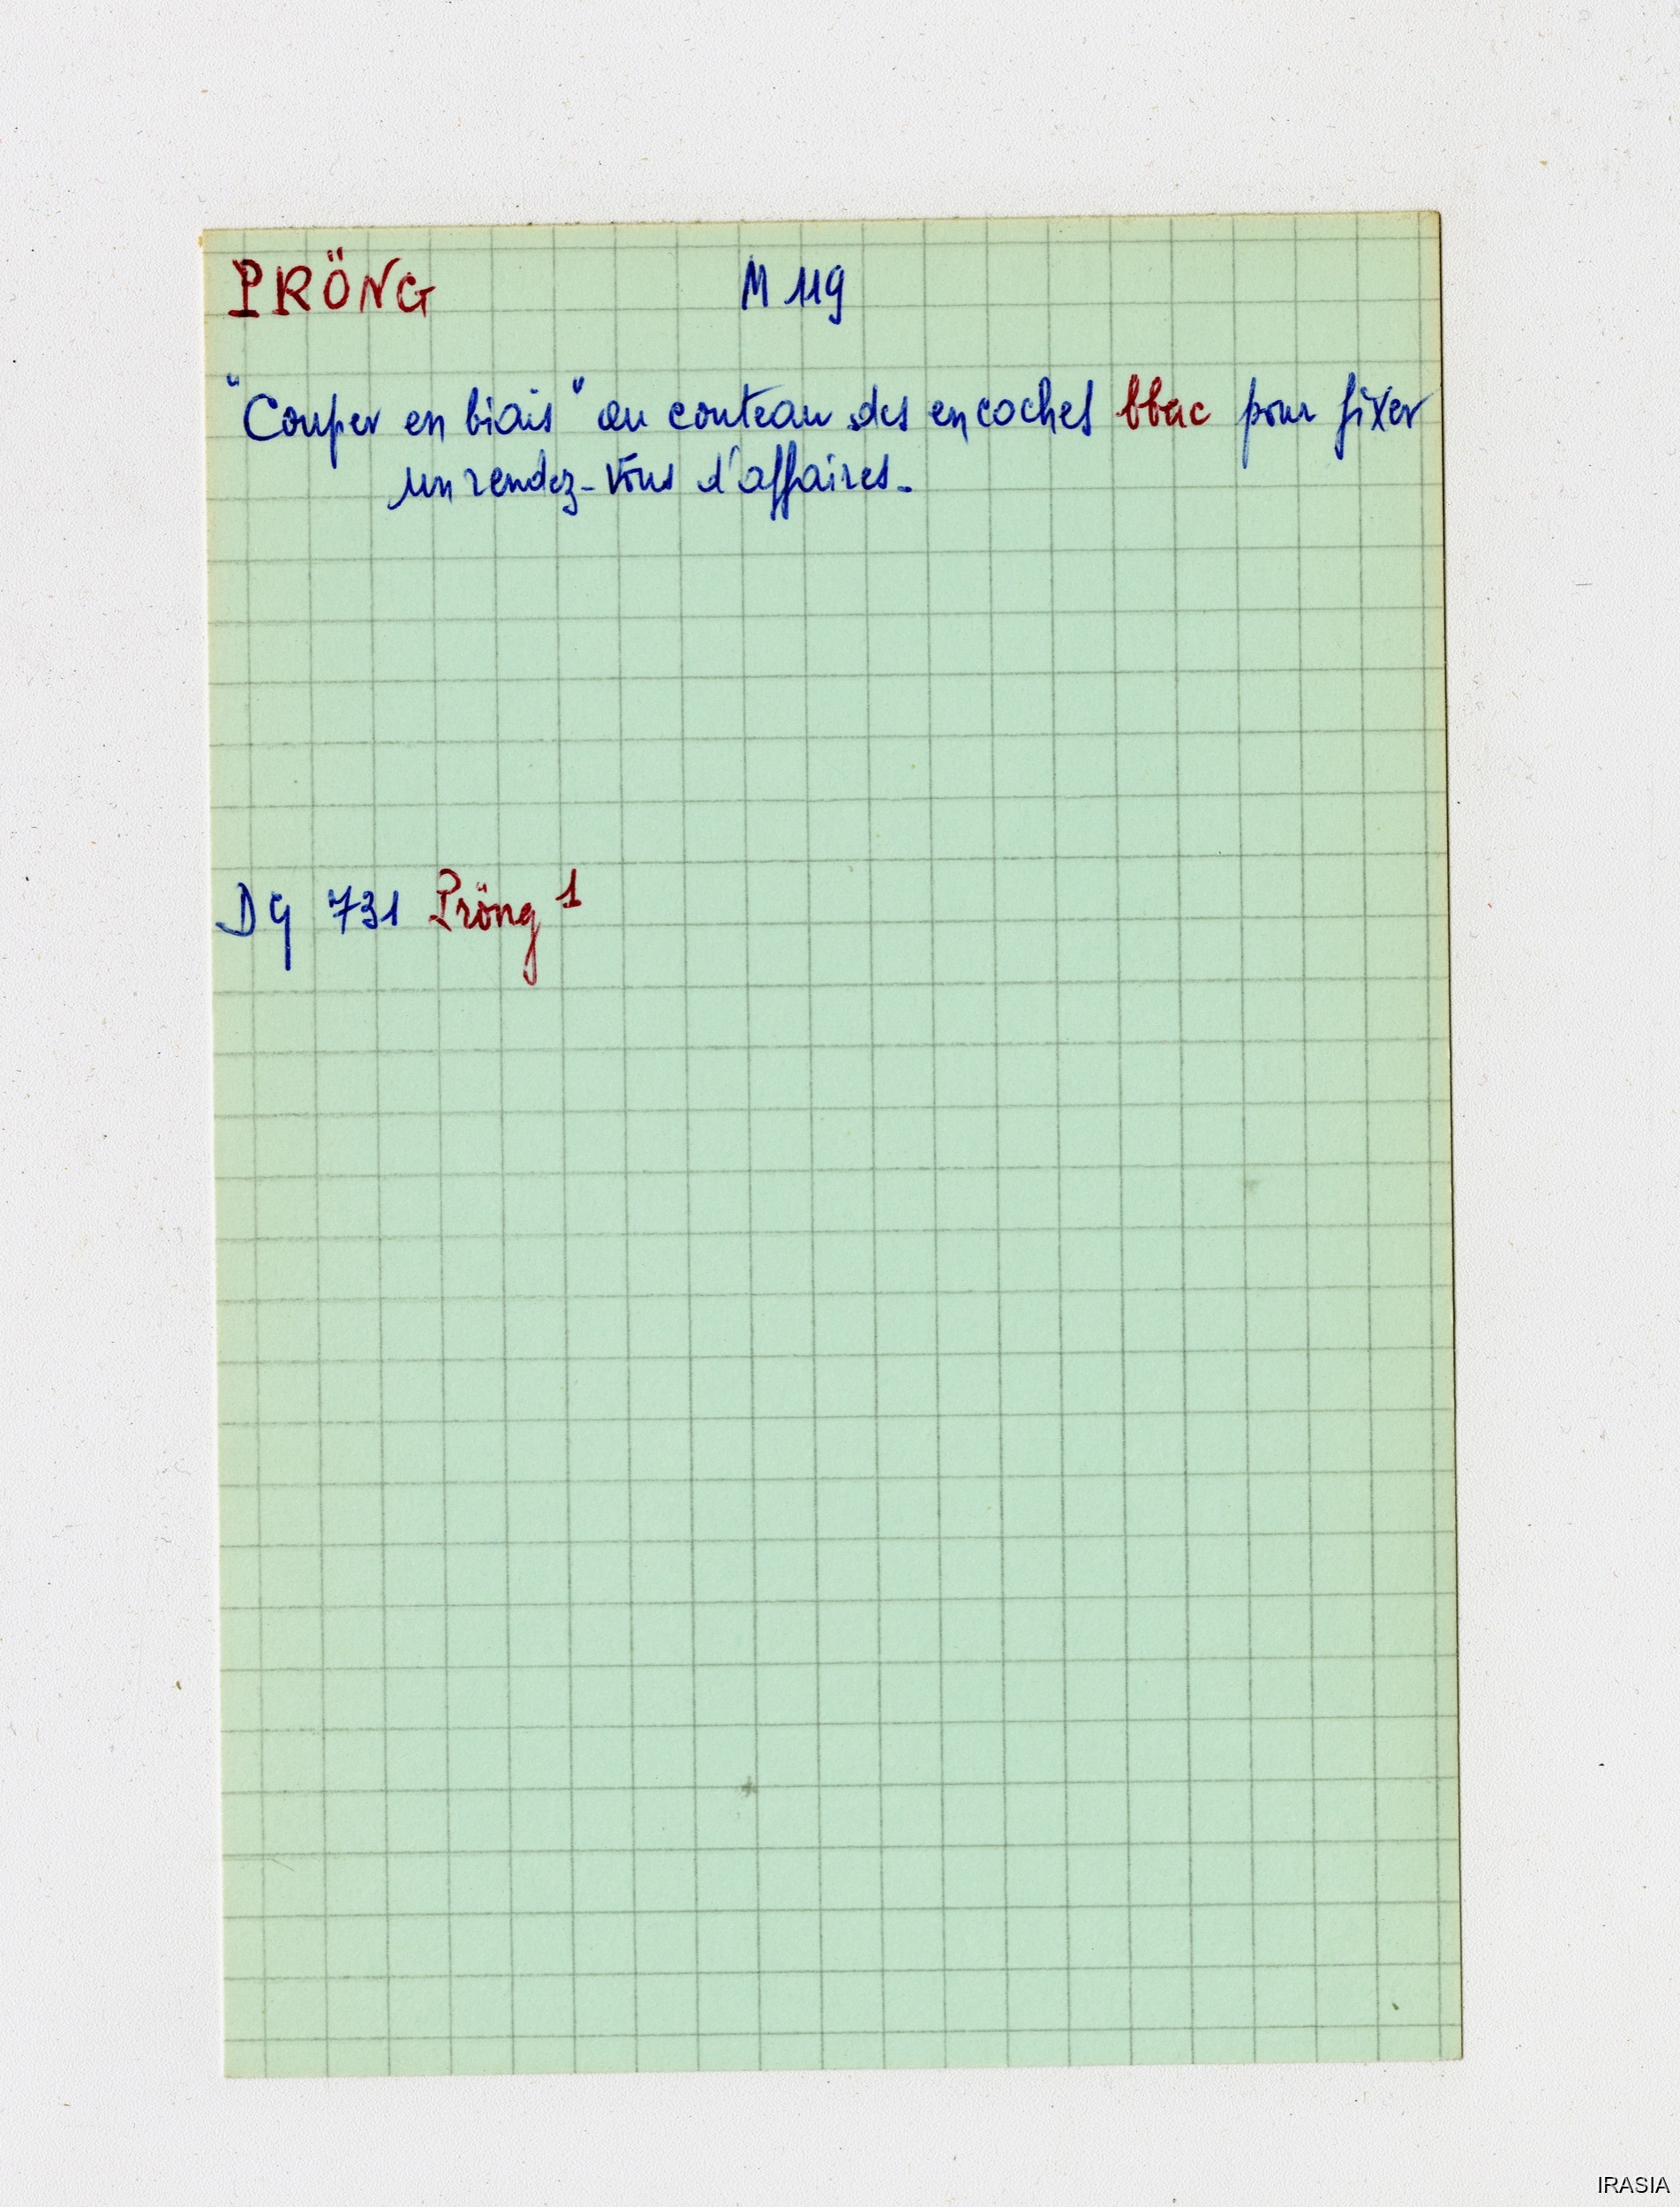 PRÖNG M 119
"Couper en biais" au couteau des encoches bbac pour fixer
un rendez-vous d'affaires.
DG 731 Pröng 1
IRASIA